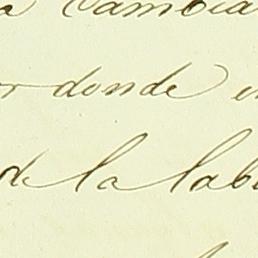 a cambia
donde
de la lab